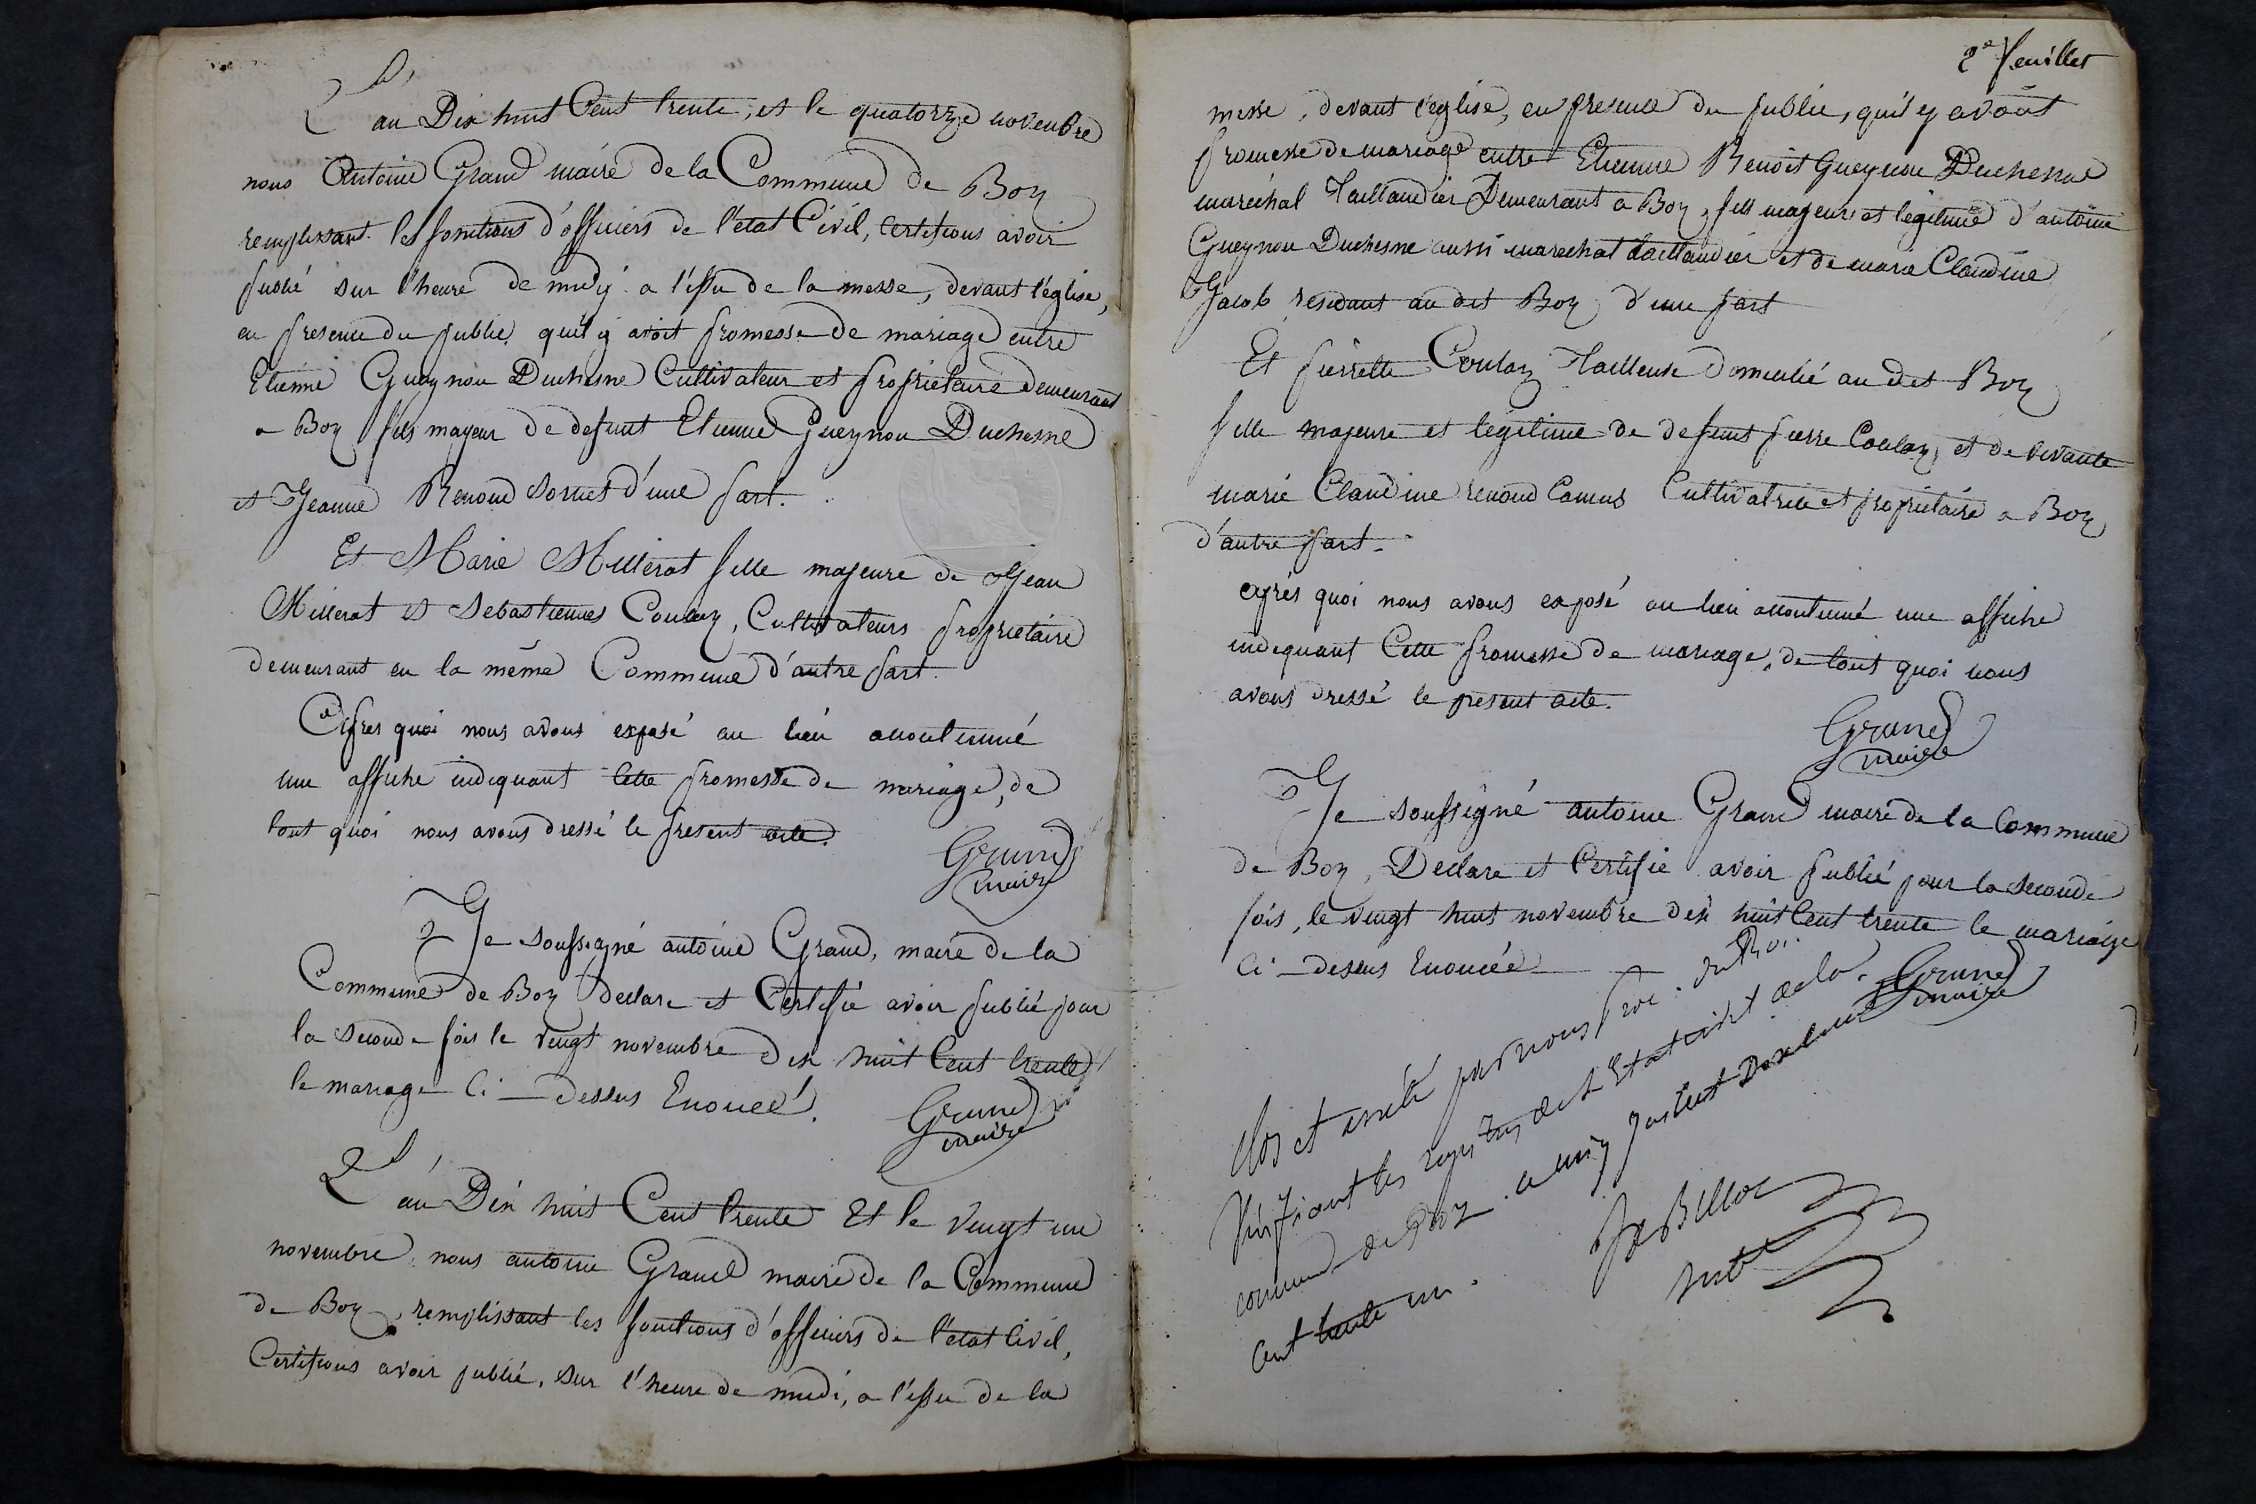 L'an Dix huit Cent trente, et le quatorze novembre
nous Antoine Grand maire de la Commune de Boz
remplissant les fonctions d'officiers de l'état Civil, Certifions avoir
publié sur l'heure de midy a l'issu de la messe, devant l'église,
en presence du public, qu'il y avoit promesse de mariage entre
Etienne Gueynou Duchesne Cultivateur et proprietaire demeurant
a Boz fils majeur de defunt Etienne Gueynou Duchesne
et Jeanne Renoud Sornet d'une part.
Et Marie Millerat fille majeure de Jean
Millerat et Sebastienne Coulaz, Cultivateurs proprietaire
demeurant en la même Commune d'autre part.
Apres quoi nous avons exposé au lieu accoutumé
une affiche indiquant Cette promesse de mariage, de
tout quoi nous avons dressé le present acte.
Grand
maire
Je soussigné antoine Grand, maire de la
Commune de Boz declare et Certifie avoir publié pour
la seconde fois le vingt novembre dix huit Cent trente
le mariage Ci-dessus Enoncé.
Grand
maire
L'an Dix huit Cent trente Et le vingt un
novembre, nous antoine Grand maire de la Commune
de Boz, remplissant les fonctions d'officiers de l'état Civil,
Certifions avoir publié, sur l'heure de midi, a l'issu de la
2e feuillet
messe, devant l'eglise, en presence du public, qu'il y avoit
promesse de mariage entre Etienne Benoit Gueynou Duchesne
maréchal Taillandier Demeurant a Boz, fils majeur et legitime d'antoine
Gueynou Duchesne aussi marechal taillandier et de marie Claudine
Jacob residant au dit Boz d'une part
Et pierrette Coulaz Tailleuse domicilié au dit Boz
fille majeure et legitime de defunt pierre Coulaz, et de vivante
marie Claudine renoud Camus Cultivatrice et propriétaire a Boz
d'autre part.
après quoi nous avons exposé au lieu accoutumé une affiche
indiquant Cette promesse de mariage, de tout quoi nous
avons dressé le present acte.
Grand
maire
Je soussigné antoine Grand maire de la Commune
de Boz, Declare et Certifie avoir publié pour la seconde
fois, le vingt huit novembre dix huit Cent trente le mariage
Ci-dessus Enoncée
Grand
maire
Clos et arrêté par nous proc. du Roi
Vérifiant les registres de l'Etat civil de la
commune de Boz. le cinq juillet Dix huit
cent trente un.